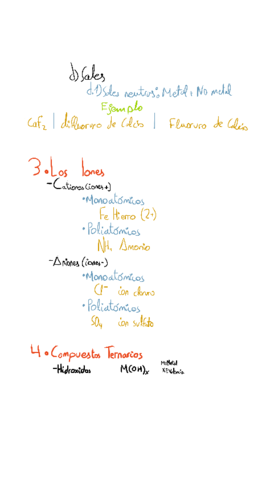 d) Sales
d.1) Sales neutras: Metal + No metal
Ejemplo
CaF₂ | difluoruro de Calcio | Fluoruro de Calcio
3. Los Iones
- Cationes (iones +)
• Monoatómicos
Fe Hierro (2+)
• Poliatómicos
NH₄ Amonio
- Aniones (iones -)
• Monoatómicos
Cl⁻ ion cloruro
• Poliatómicos
SO₄ ion sulfato
4. Compuestos Ternarios
- Hidróxidos M(OH)ₓ M: Metal
X: Valencia